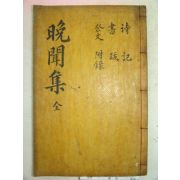 晩聞集 全
詩 記
書 跋
祭文 附錄